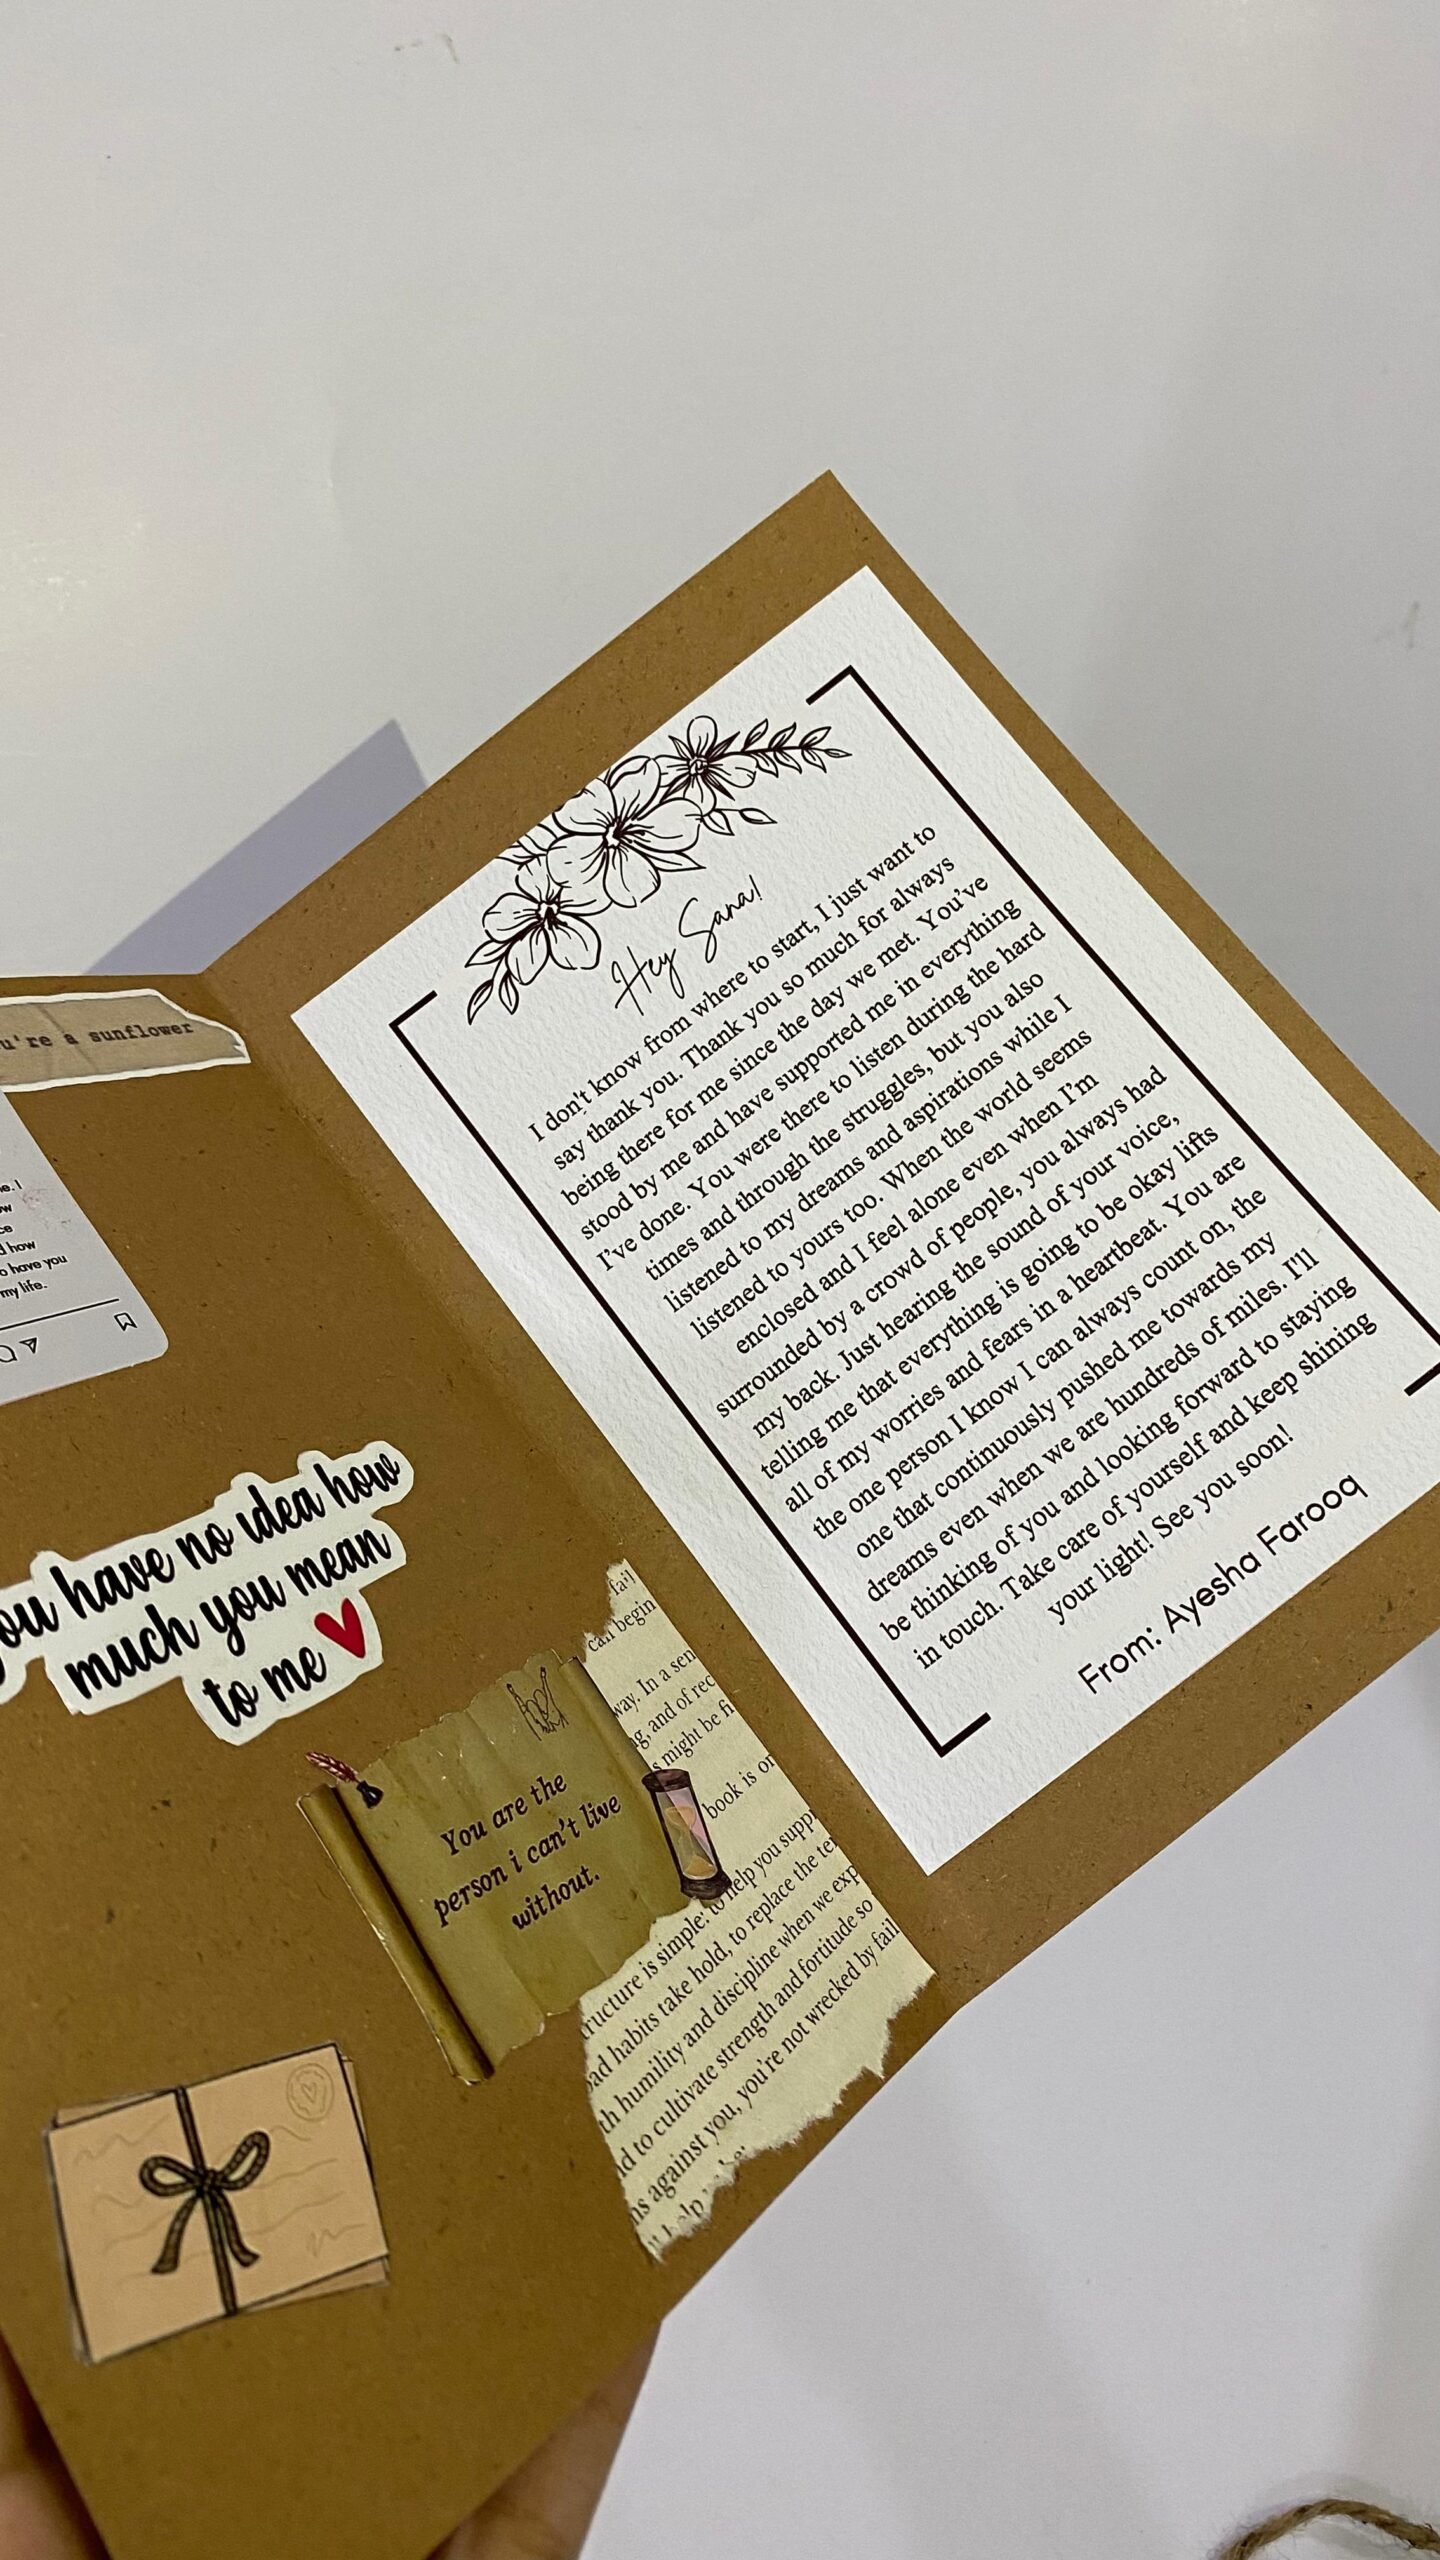 u're a sunflower
e. I
ow
ce
d how
o have you
my life.
you have no idea how
much you mean
to me
You are the
person i can't live
without.
fail
can begin
way. In a sen
ng, and of rec
s might be fi
book is on
tructure is simple: to help you suppr
ad habits take hold, to replace the te
th humility and discipline when we exp
nd to cultivate strength and fortitude so
ns against you, you're not wrecked by fail
Hey Sana!
I don't know from where to start, I just want to
say thank you. Thank you so much for always
being there for me since the day we met. You've
stood by me and have supported me in everything
I've done. You were there to listen during the hard
times and through the struggles, but you also
listened to my dreams and aspirations while I
listened to yours too. When the world seems
enclosed and I feel alone even when I'm
surrounded by a crowd of people, you always had
my back. Just hearing the sound of your voice,
telling me that everything is going to be okay lifts
all of my worries and fears in a heartbeat. You are
the one person I know I can always count on, the
one that continuously pushed me towards my
dreams even when we are hundreds of miles. I'll
be thinking of you and looking forward to staying
in touch. Take care of yourself and keep shining
your light! See you soon!
From: Ayesha Farooq